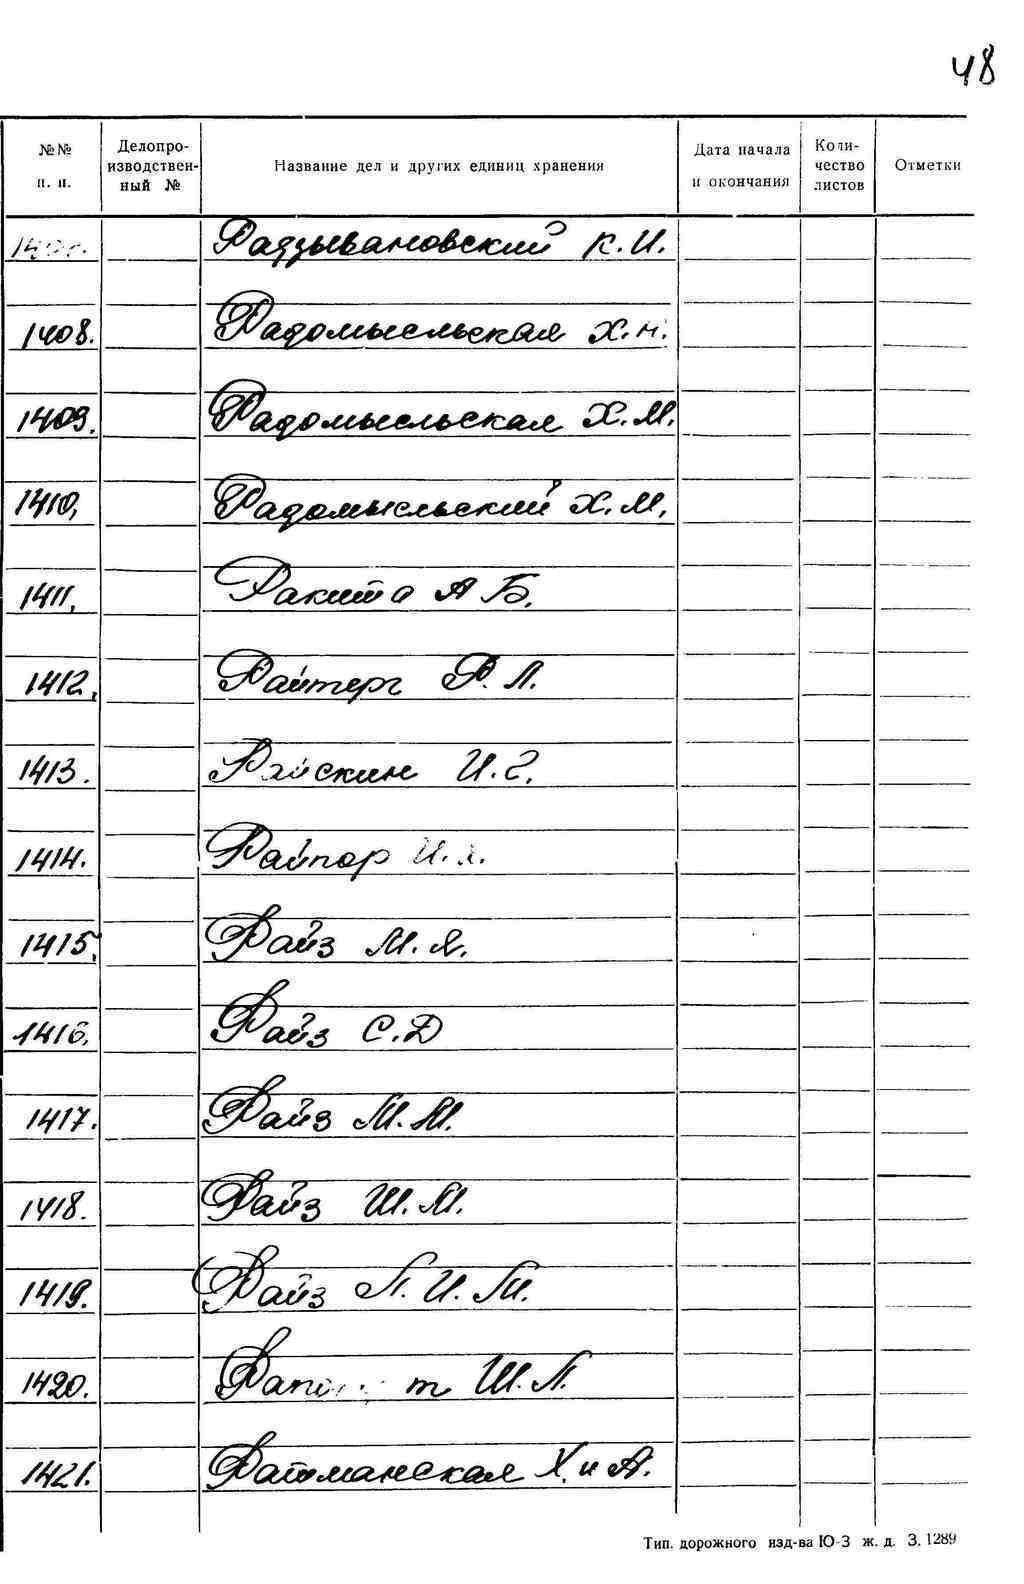 48
№№ п. п. Делопроизводственный № Название дел и других единиц хранения Дата начала и окончания Количество листов Отметки
Радзывановский К.И.
1408. Радомысльская Х.Н.
1409. Радомысльская Х.М.
1410, Радомысльский Х.М.
1411, Ракита А Б.
1412, Райтерг Р.Л.
1413. Райскин И.Г.
1414. Райпор И.
1415, Райз М.Я.
1416, Райз С.Д
1417. Райз М.М.
1418. Райз Ш.М.
1419. Райз Л.И.М.
1420. Ш.Л.
1421. Ратманская Х.и А.
Тип. дорожного изд-ва Ю-З ж. д. З. 1289